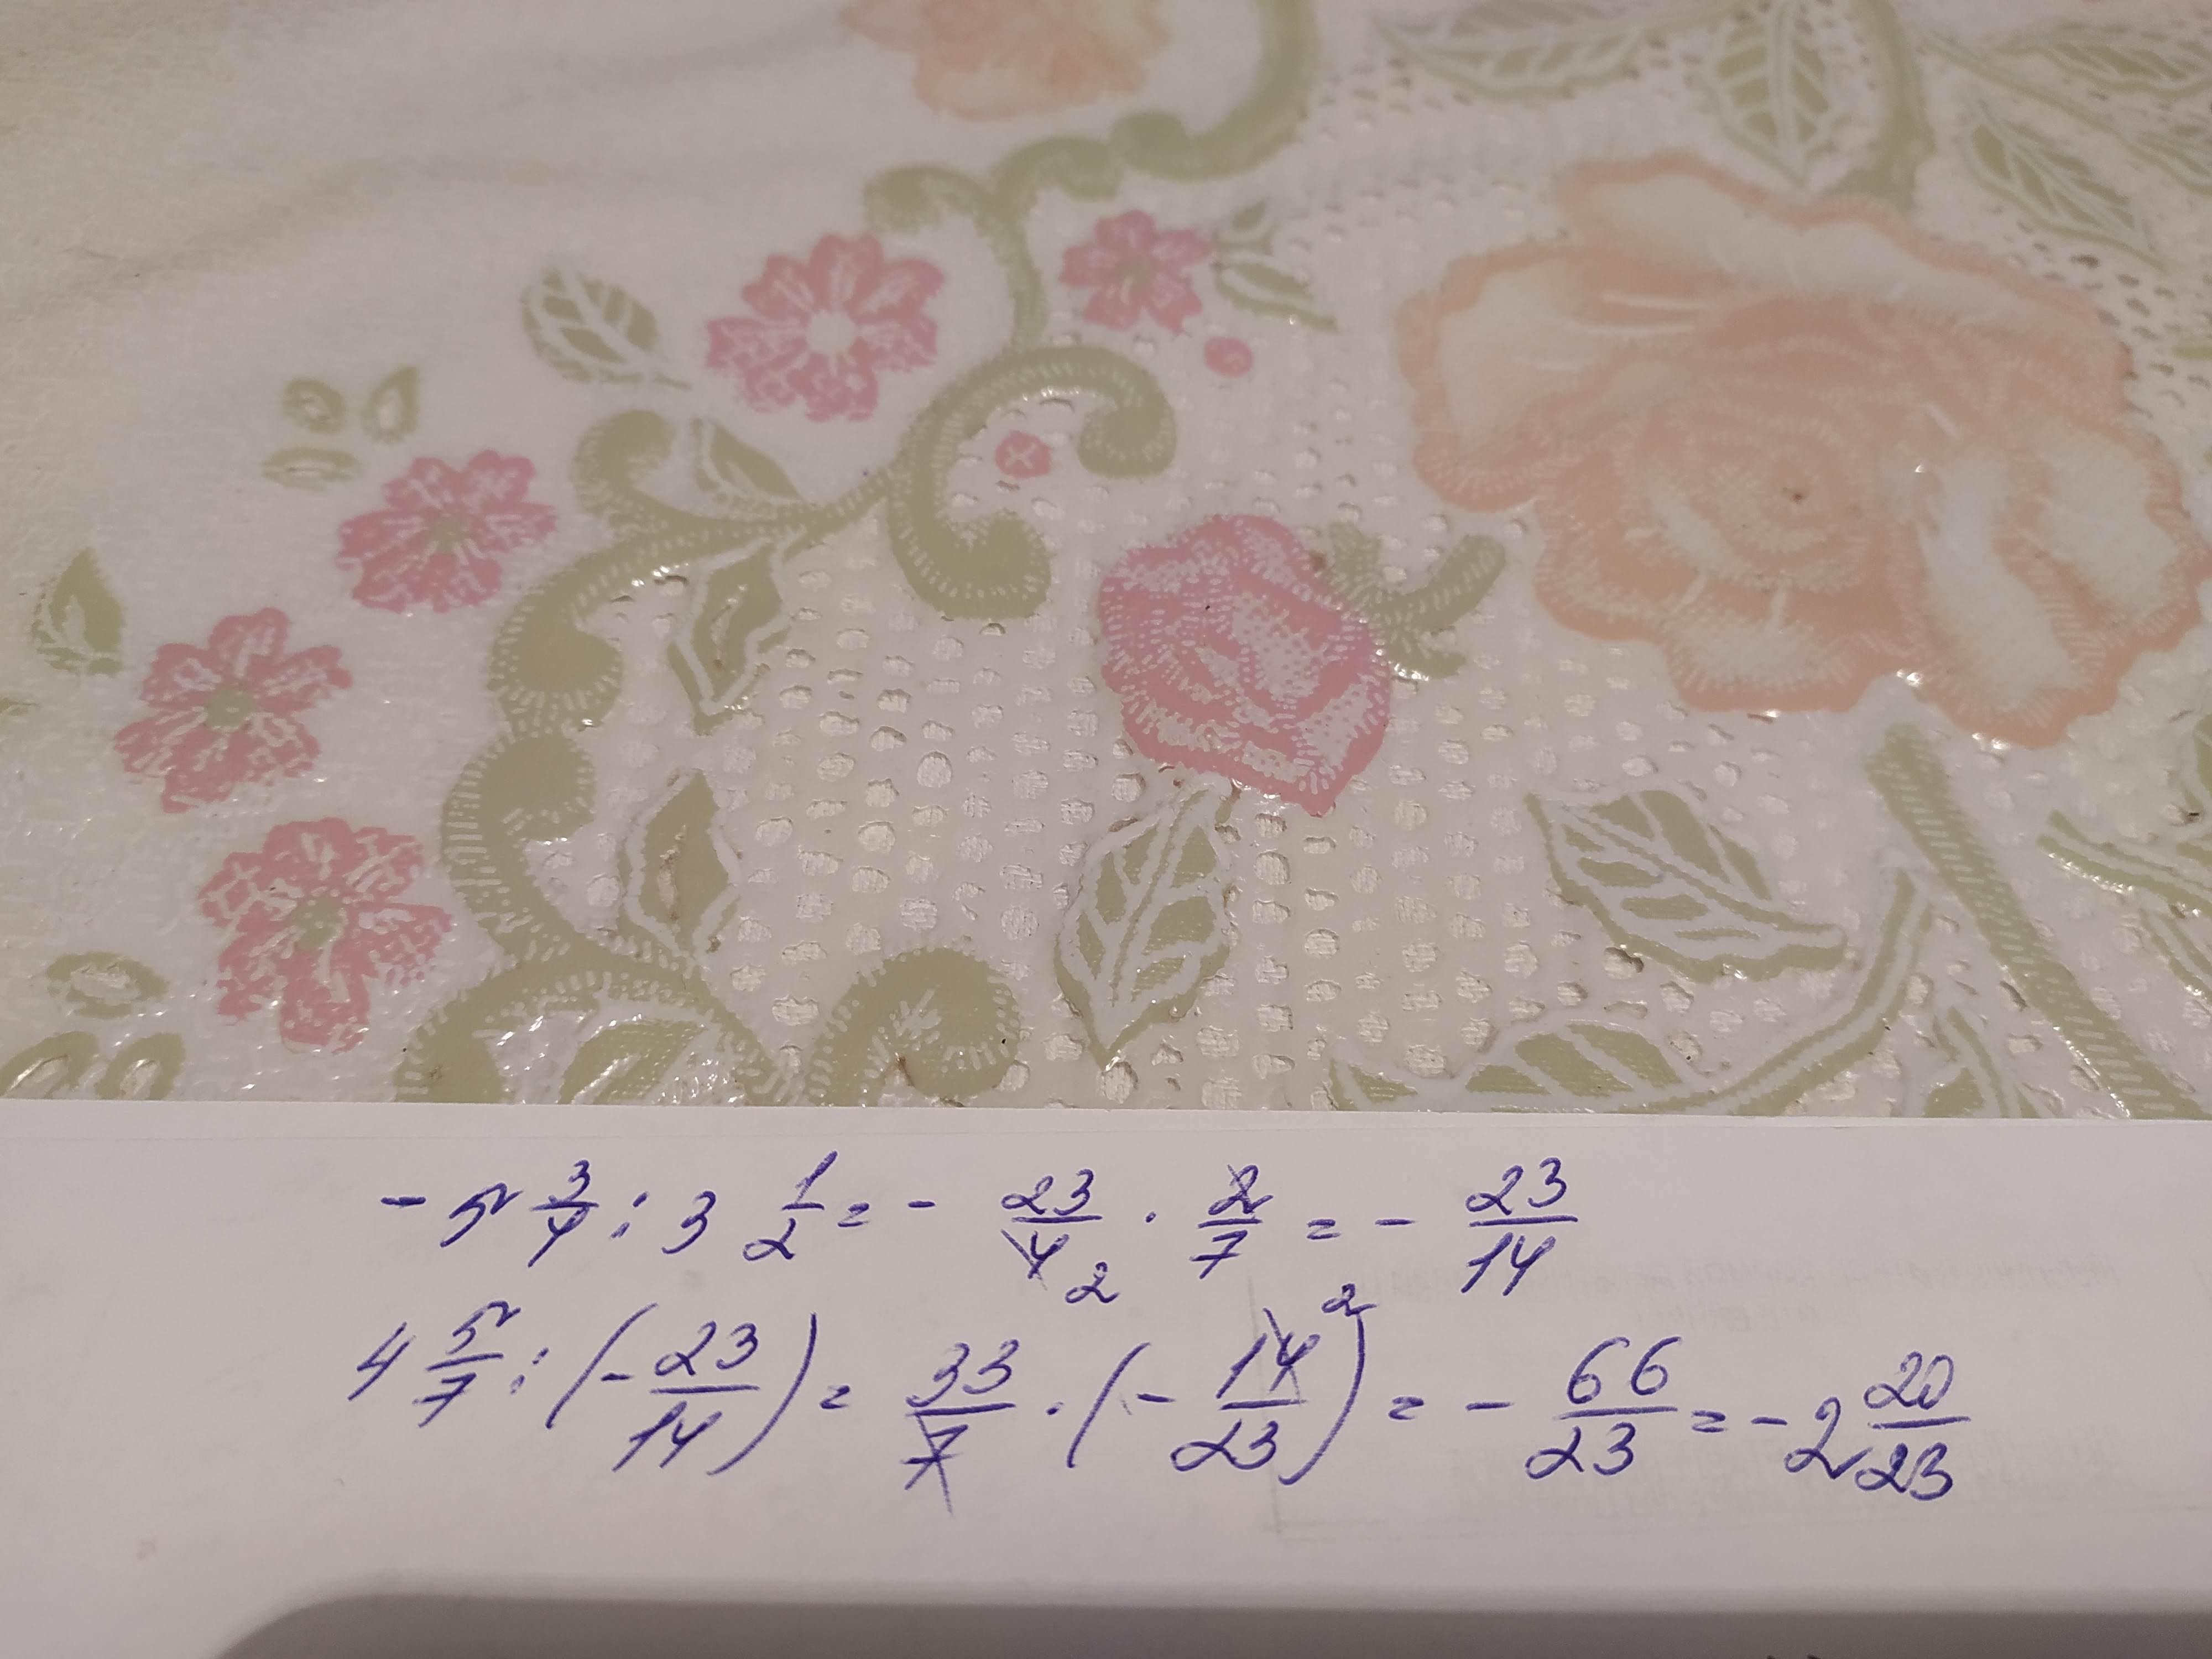 - 5 3/4 : 3 1/2 = - 23/4 2 · 2/7 = - 23/14
4 5/7 : (- 23/14) = 33/7 · (- 14/23) 2 = - 66/23 = - 2 20/23